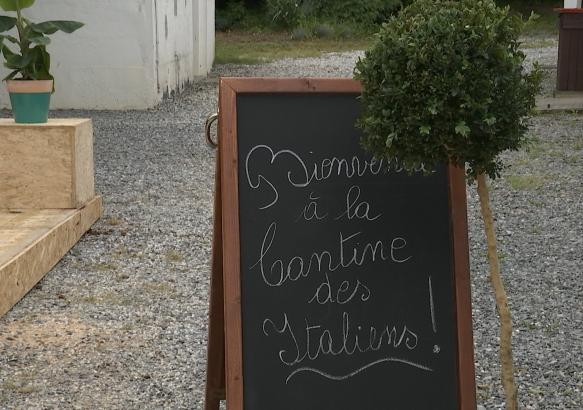 Bienvenue
à la
Cantine
des
Italiens !